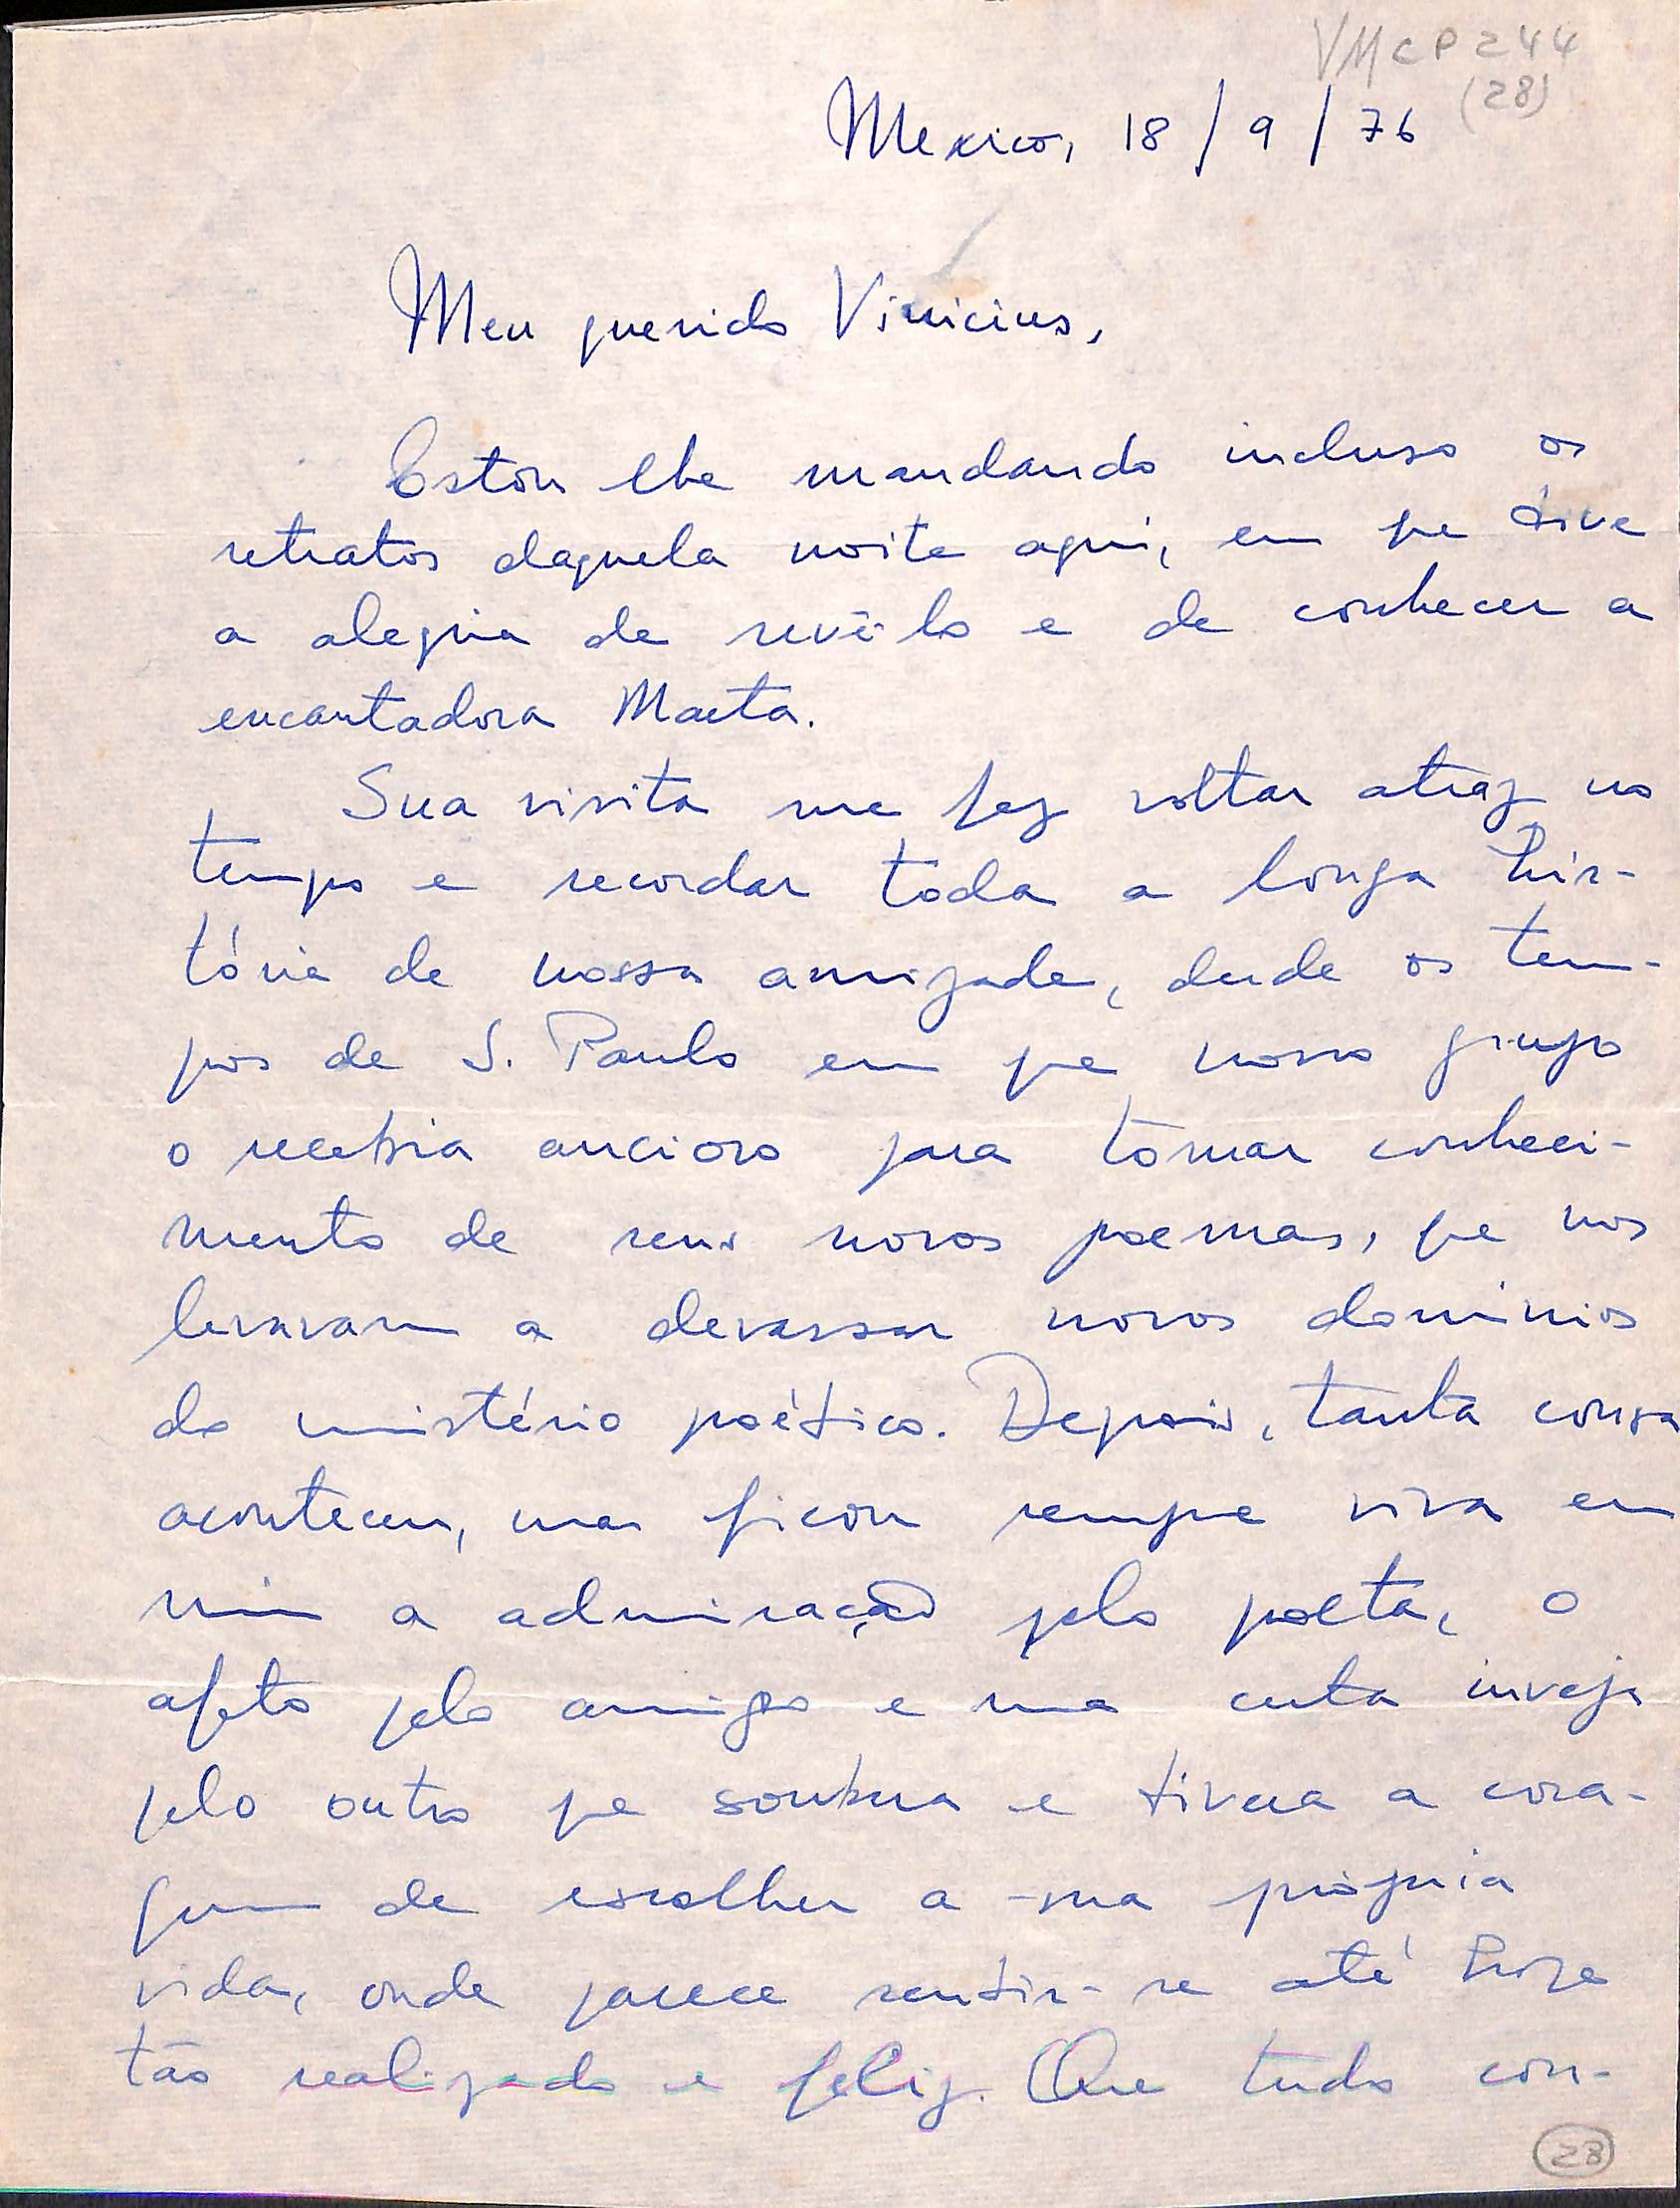 VMCP244
(28)
Mexico, 18/9/76
Meu querido Vinicius,
Estou lhe mandando incluso os
retratos daquela noite aqui, em qe tive
a alegria de revê-lo e de conhecer a
encantadora Marta.
Sua visita me fez voltar atraz no
tempo e recordar toda a longa his-
tória de nossa amizade, desde os tem-
pos de S. Paulo em qe nosso grupo
o recebia ancioso para tomar conheci-
mento de seus novos poemas, qe nos
levavam a devassar novos dominios
do mistério poético. Depois, tanta cousa
aconteceu, mas ficou sempre viva em
mim a admiração pelo poeta, o
afeto pelo amigo e uma certa inveja
pelo outro qe soubera e tivera a cora-
gem de escolher a sua própria
vida, onde parece sentir-se até hoje
tão realizado e feliz. Que tudo con-
28